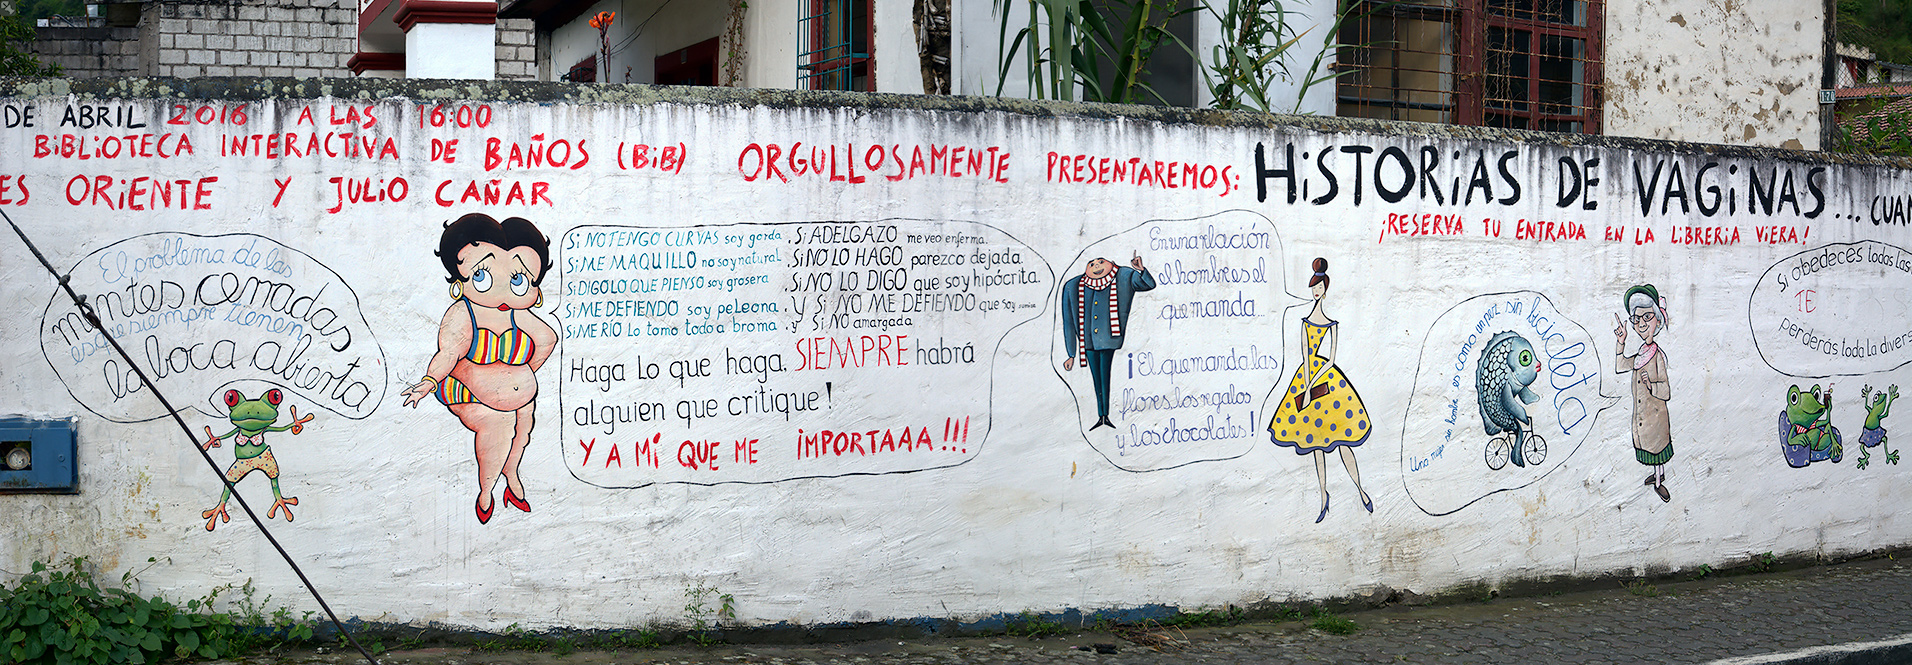 DE ABRIL 2016 A LAS 16:00
BIBLIOTECA INTERACTIVA DE BAÑOS (BIB) ORGULLOSAMENTE PRESENTAREMOS: HISTORIAS DE VAGINAS... CUAN
ES ORIENTE Y JULIO CAÑAR
¡RESERVA TU ENTRADA EN LA LIBRERIA VIERA!
El problema de las
mentes cerradas
es que siempre tienen
la boca abierta
SI NO TENGO CURVAS soy gorda. SI ADELGAZO me veo enferma.
SI ME MAQUILLO no soy natural. SI NO LO HAGO parezco dejada.
SI DIGO LO QUE PIENSO soy grosera. SI NO LO DIGO que soy hipócrita.
SI ME DEFIENDO soy peleona. Y SI NO ME DEFIENDO que soy
SI ME RÍO lo tomo todo a broma. y SI NO amargada
Haga lo que haga, SIEMPRE habrá
alguien que critique!
Y A MÍ QUE ME IMPORTAAA!!!
En una rlación
el hombre es el
que manda...
¡El que manda las
flores, los regalos
y los chocolates!
Una mujer sin hombre es como un pez sin bicicleta
Si obedeces todas las
TE
perderás toda la divers
1-70